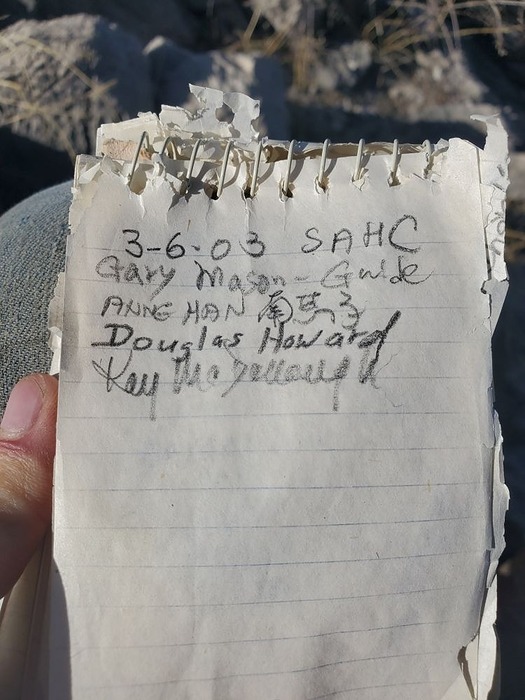 3-6-03 SAHC
Gary Mason - Guide
ANNE HAN
Douglas Howard
Kay McCullough